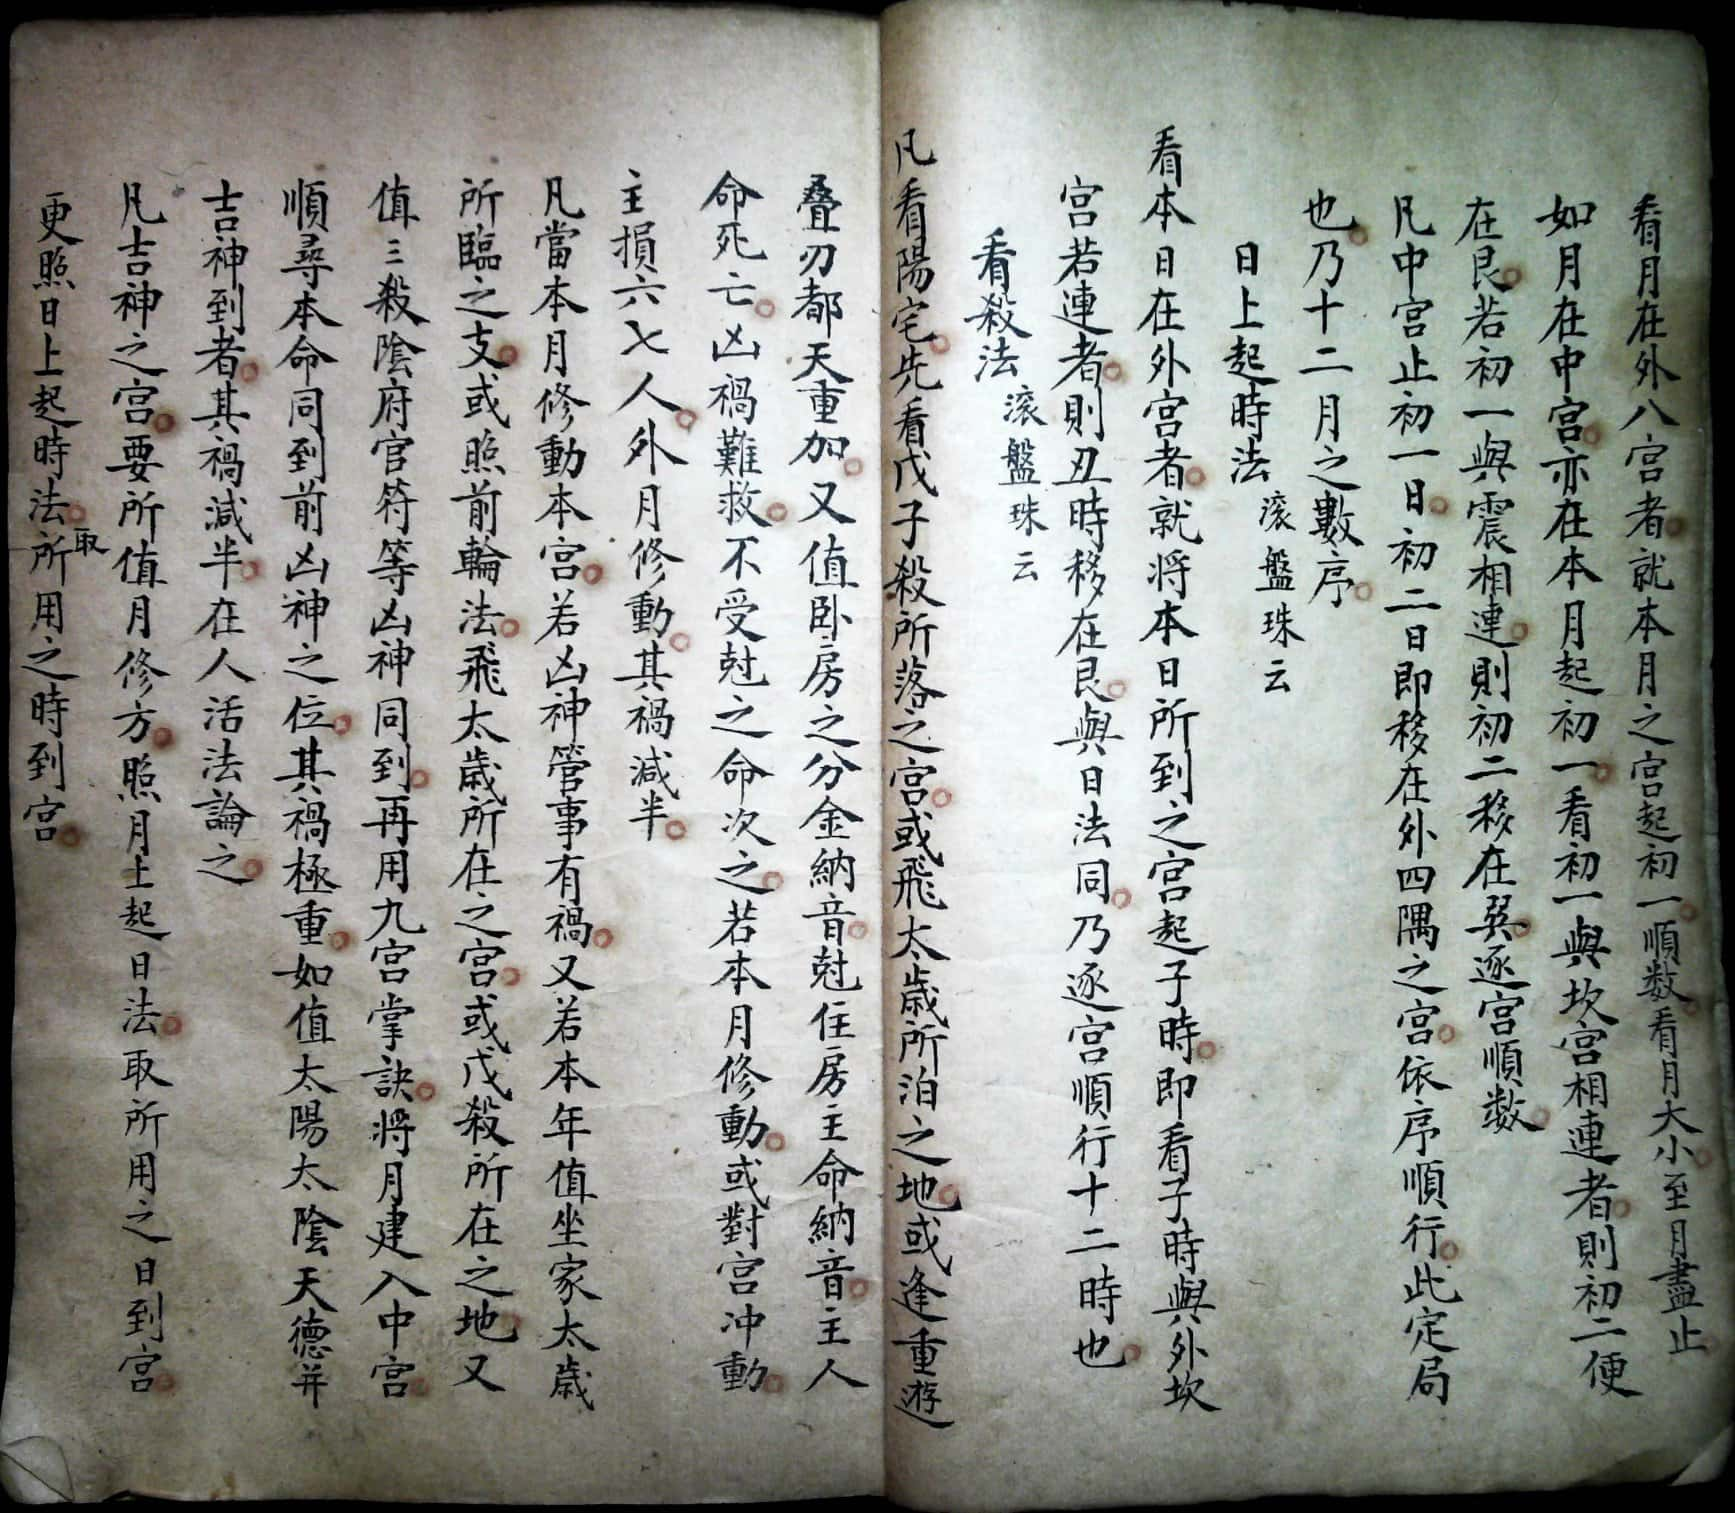 看月在外八宮者就本月之宮起初一順数看月大小至月盡止
如月在中宮亦在本月起初一看初一與坎宮相連者則初二便
在艮若初一與震相連則初二移在巽逐宮順数
凡中宮止初一日初二日即移在外四隅之宮依序順行此定局
也乃十二月之數序
日上起時法 滚盤珠云
看本日在外宮者就将本日所到之宮起子時即看子時與外坎
宮若連者則丑時移在艮與日法同乃逐宮順行十二時也
看殺法 滚盤珠云
凡看陽宅先看戊子殺所落之宮或飛太歲所泊之地或逢重遊
叠刃都天重加又值卧房之分金納音尅住房主命納音主人
命死亡凶禍難救不受尅之命次之若本月修動或對宮冲動
主損六七人外月修動其禍减半
凡當本月修動本宮若凶神管事有禍又若本年值坐家太歲
所臨之支或照前輪法飛太歲所在之宮或戊殺所在之地又
值三殺陰府官符等凶神同到再用九宮掌訣将月建入中宮
順尋本命同到前凶神之位其禍極重如值太陽太陰天德并
吉神到者其禍减半在人活法論之
凡吉神之宮要所值月修方照月上起日法取所用之日到宮
更照日上起時法取所用之時到宮